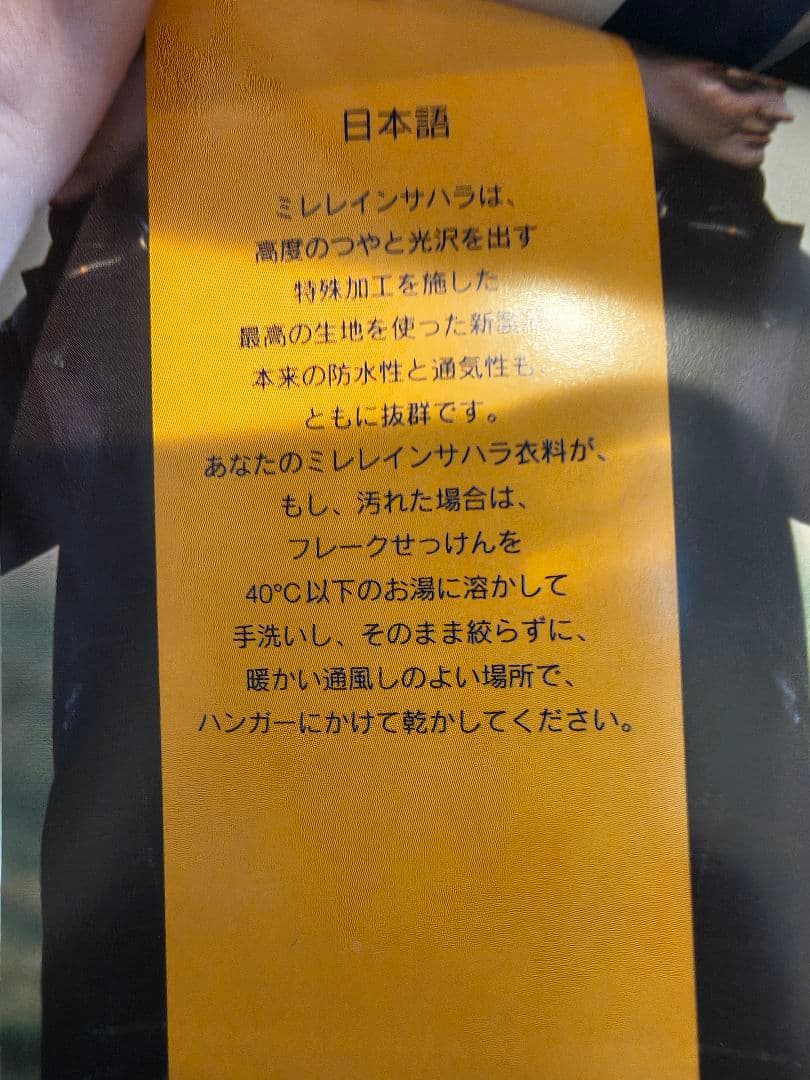 日本語
ミレレインサハラは、
高度のつやと光沢を出す
特殊加工を施した
最高の生地を使った新製品
本来の防水性と通気性も、
ともに抜群です。
あなたのミレレインサハラ衣料が、
もし、汚れた場合は、
フレークせっけんを
40°C以下のお湯に溶かして
手洗いし、そのまま絞らずに、
暖かい通風しのよい場所で、
ハンガーにかけて乾かしてください。